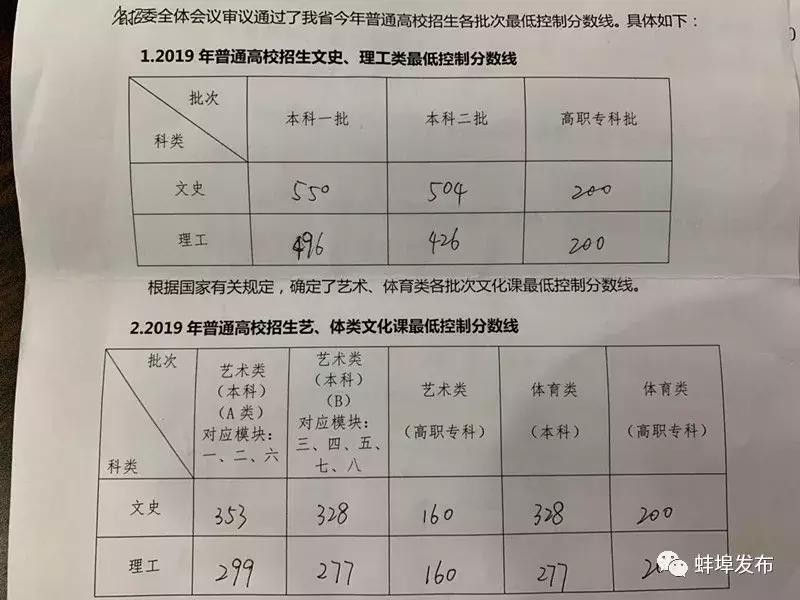 省招委全体会议审议通过了我省今年普通高校招生各批次最低控制分数线。具体如下：
1.2019 年普通高校招生文史、理工类最低控制分数线
批次
科类
本科一批 本科二批 高职专科批
文史 550 504 200
理工 496 426 200
根据国家有关规定，确定了艺术、体育类各批次文化课最低控制分数线。
2.2019 年普通高校招生艺、体类文化课最低控制分数线
批次
科类
艺术类
（本科）
（A 类）
对应模块：
一、二、六
艺术类
（本科）
（B）
对应模块：
三、四、五、
七、八
艺术类
（高职专科）
体育类
（本科）
体育类
（高职专科）
文史 353 328 160 328 200
理工 299 277 160 277
蚌埠发布